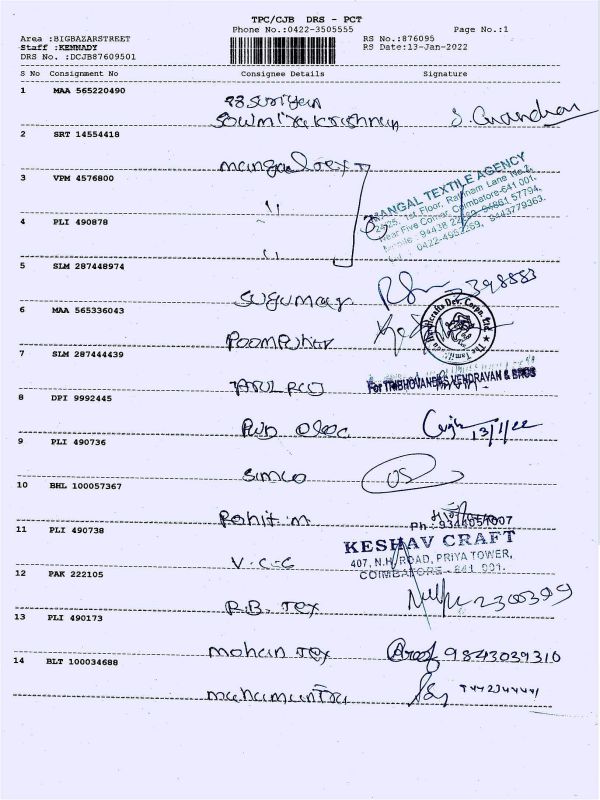 TPC/CJB DRS - PCT
Phone No.:0422-3505555
Page No.:1
Area :BIGBAZARSTREET
RS No.:876095
Staff :KENNADY
RS Date:13-Jan-2022
DRS No. :DCJB87609501
S No Consignment No Consignee Details Signature
1 MAA 565220490
Sowmiya krishnan
2 SRT 14554418
mangal tex
3 VPM 4576800
"
MANGAL TEXTILE AGENCY
1st Floor, Rathinam Lane No.2,
Near Five Corner, Coimbatore-641 001.
4 PLI 490878
"
5 SLM 287448974
Sugumar
6 MAA 565336043
Poompuhar
7 SLM 287444439
For TRIBHOVANDAS VENDRAVAN & BROS
8 DPI 9992445
13/1/22
9 PLI 490736
Simco
10 BHL 100057367
Rohit m
Ph: 9344051007
11 PLI 490738
KESHAV CRAFT
407, N.H. ROAD, PRIYA TOWER,
COIMBATORE - 641 001.
V-C-G
12 PAK 222105
R.B. Tex 2300399
13 PLI 490173
mohan Tex 9843039310
14 BLT 100034688
mahamantra